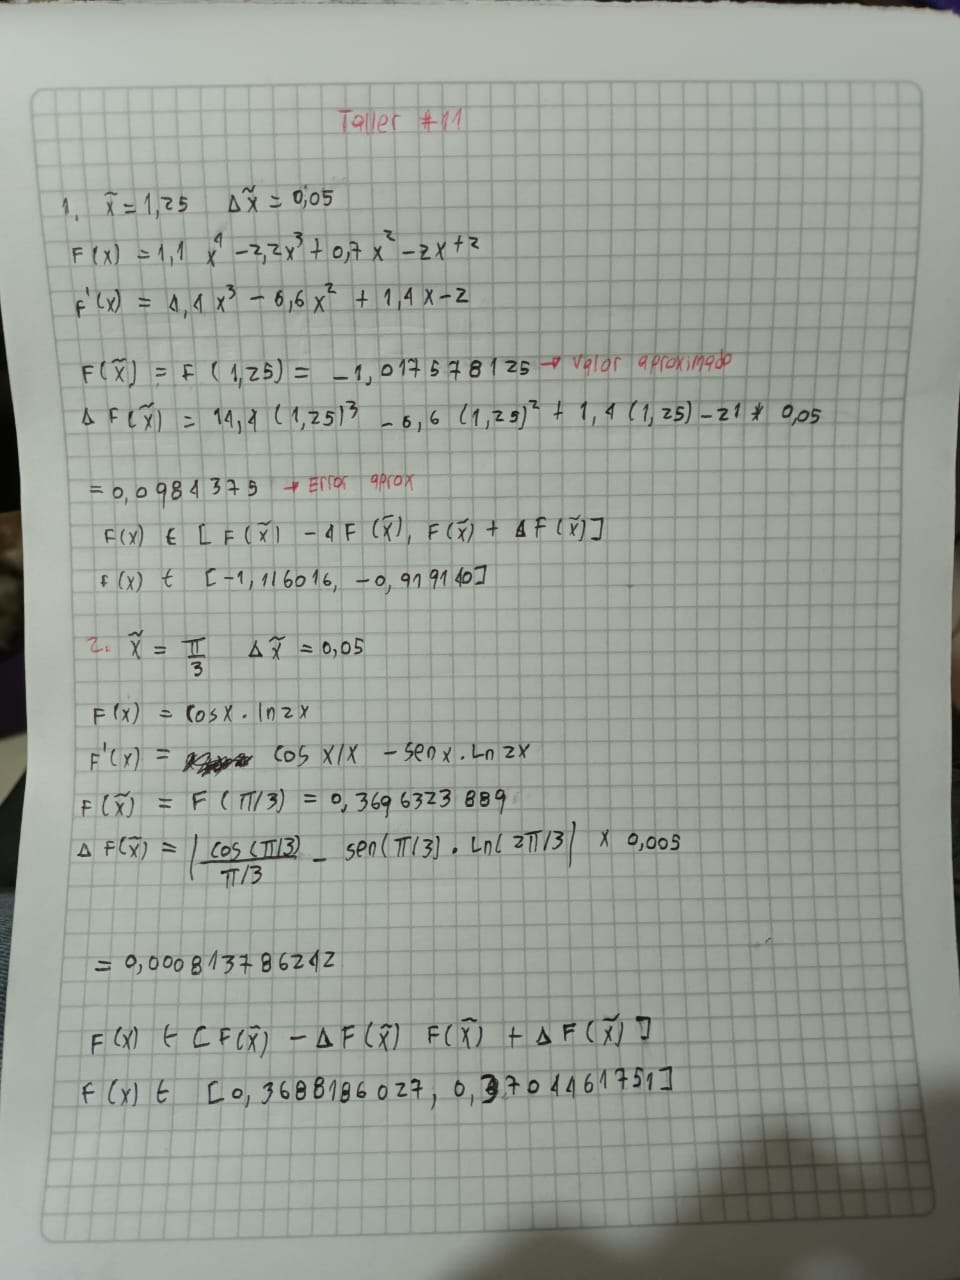 Taller #11
1. x̃ = 1,25 Δx̃ = 0,05
F(x) = 1,1 x⁴ - 2,2x³ + 0,7x² - 2x + 2
F'(x) = 4,4x³ - 6,6x² + 1,4x - 2
F(x̃) = F(1,25) = -1,017578125 → Valor aproximado
ΔF(x̃) = |4,4(1,25)³ - 6,6(1,25)² + 1,4(1,25) - 2| * 0,05
= 0,0984375 → Error aprox
F(x) ∈ [F(x̃) - ΔF(x̃), F(x̃) + ΔF(x̃)]
F(x) ∈ [-1,116016, -0,919140]
2. x̃ = π/3 Δx̃ = 0,05
F(x) = cosx . ln2x
F'(x) = cos x/x - senx . Ln2x
F(x̃) = F(π/3) = 0,3696323889
ΔF(x̃) = |cos(π/3)/π/3 - sen(π/3) . Ln(2π/3| x 0,005
= 0,000813786242
F(x) ∈ [F(x̃) - ΔF(x̃) F(x̃) + ΔF(x̃)]
F(x) ∈ [0,3688186027, 0,3704461751]